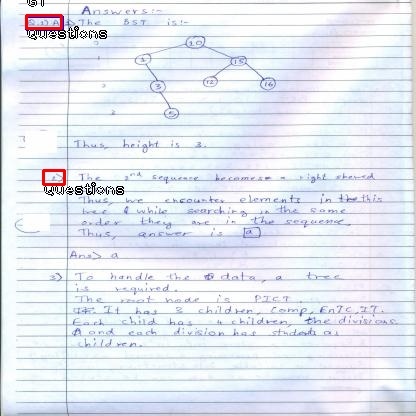 Q1
Answers:-
Q.1) A) The BST is:-
Questions
0
10
1
15
3
12
16
3
5
Thus, height is 3.
2) The 2nd sequence becomes a right skewed
Questions
Thus, we encounter elements in the this
tree & while searching in the same
order they are in the sequence.
Thus, answer is a
Ans> a
3) To handle the data, a tree
is required.
The root node is PICT.
It has 3 children, Comp, EnTC, IT.
Each child has 4 children, the divisions
and each division has students as
children.